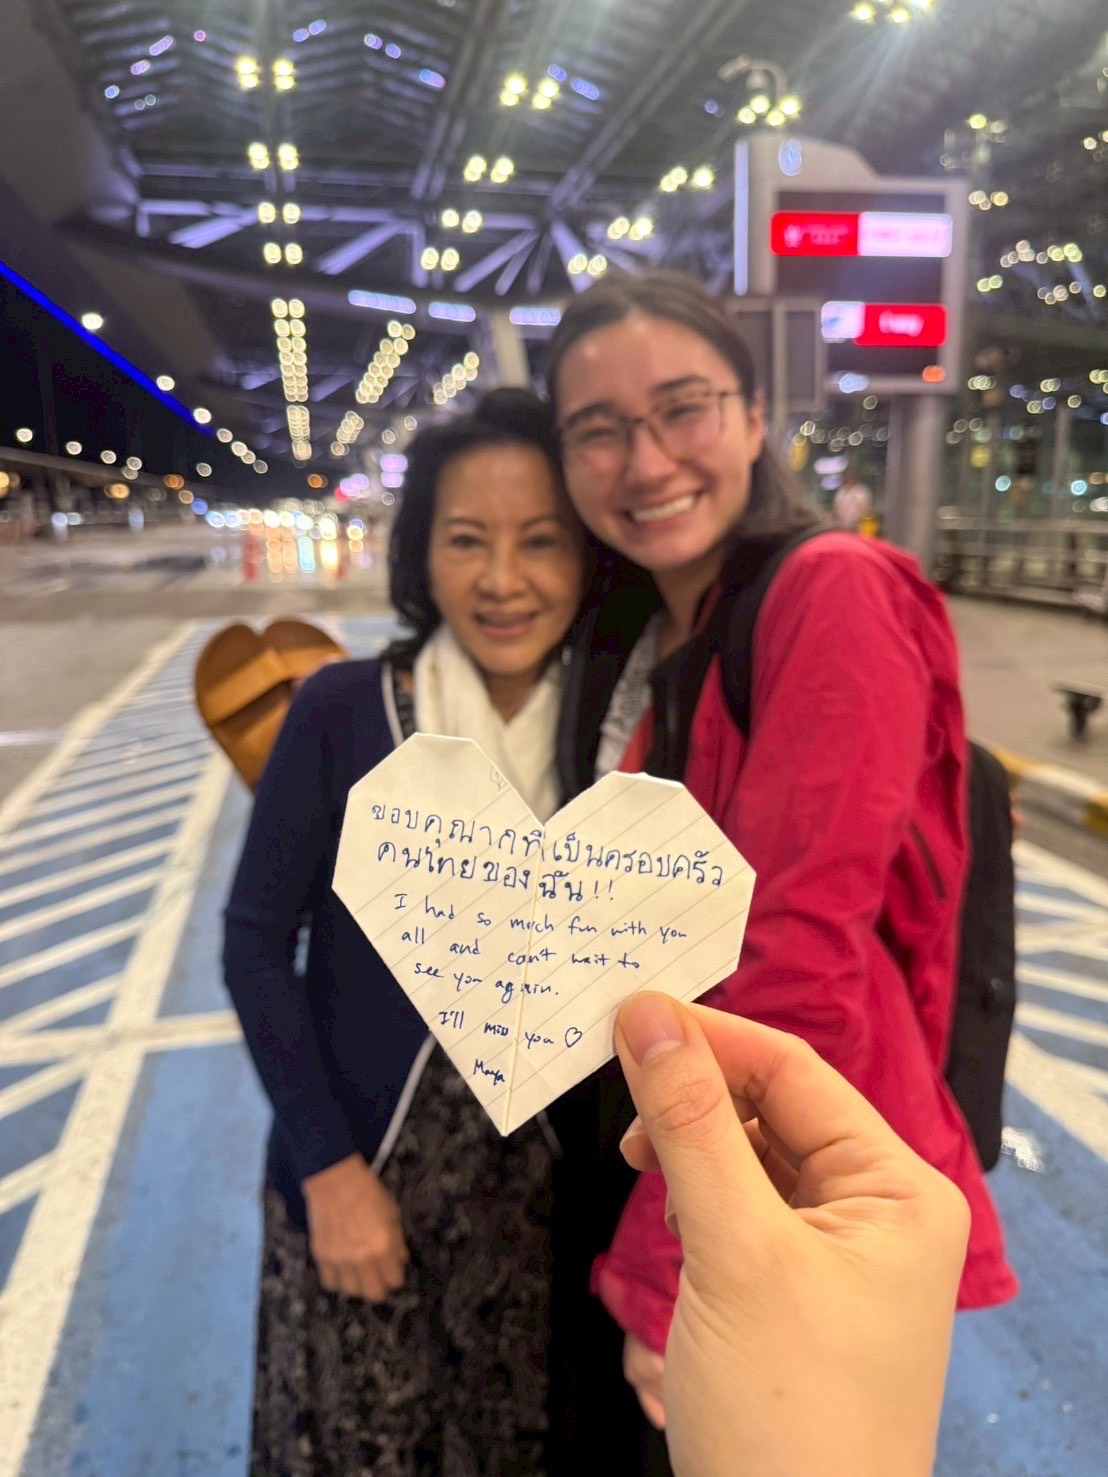 ขอบคุณากที่เป็นครอบครัว
คนไทยของฉัน!!
I had so much fun with you
all and can't wait to
see you again.
I'll miss you ♡
Maya